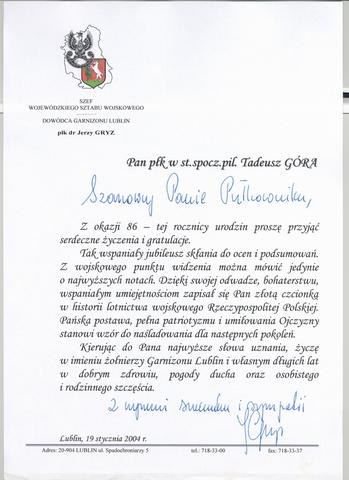 SZEF
WOJEWÓDZKIEGO SZTABU WOJSKOWEGO
DOWÓDCA GARNIZONU LUBLIN
płk dr Jerzy GRYZ
Pan płk w st.spocz.pil. Tadeusz GÓRA
Szanowny Panie Pułkowniku,
Z okazji 86 – tej rocznicy urodzin proszę przyjąć
serdeczne życzenia i gratulacje.
Tak wspaniały jubileusz skłania do ocen i podsumowań.
Z wojskowego punktu widzenia można mówić jedynie
o najwyższych notach. Dzięki swojej odwadze, bohaterstwu,
wspaniałym umiejętnościom zapisał się Pan złotą czcionką
w historii lotnictwa wojskowego Rzeczypospolitej Polskiej.
Pańska postawa, pełna patriotyzmu i umiłowania Ojczyzny
stanowi wzór do naśladowania dla następnych pokoleń.
Kierując do Pana najwyższe słowa uznania, życzę
w imieniu żołnierzy Garnizonu Lublin i własnym długich lat
w dobrym zdrowiu, pogody ducha oraz osobistego
i rodzinnego szczęścia.
Z wyrazami szacunku i sympatii
Lublin, 19 stycznia 2004 r.
Adres: 20-904 LUBLIN ul. Spadochroniarzy 5 tel.: 718-33-00 fax: 718-33-37